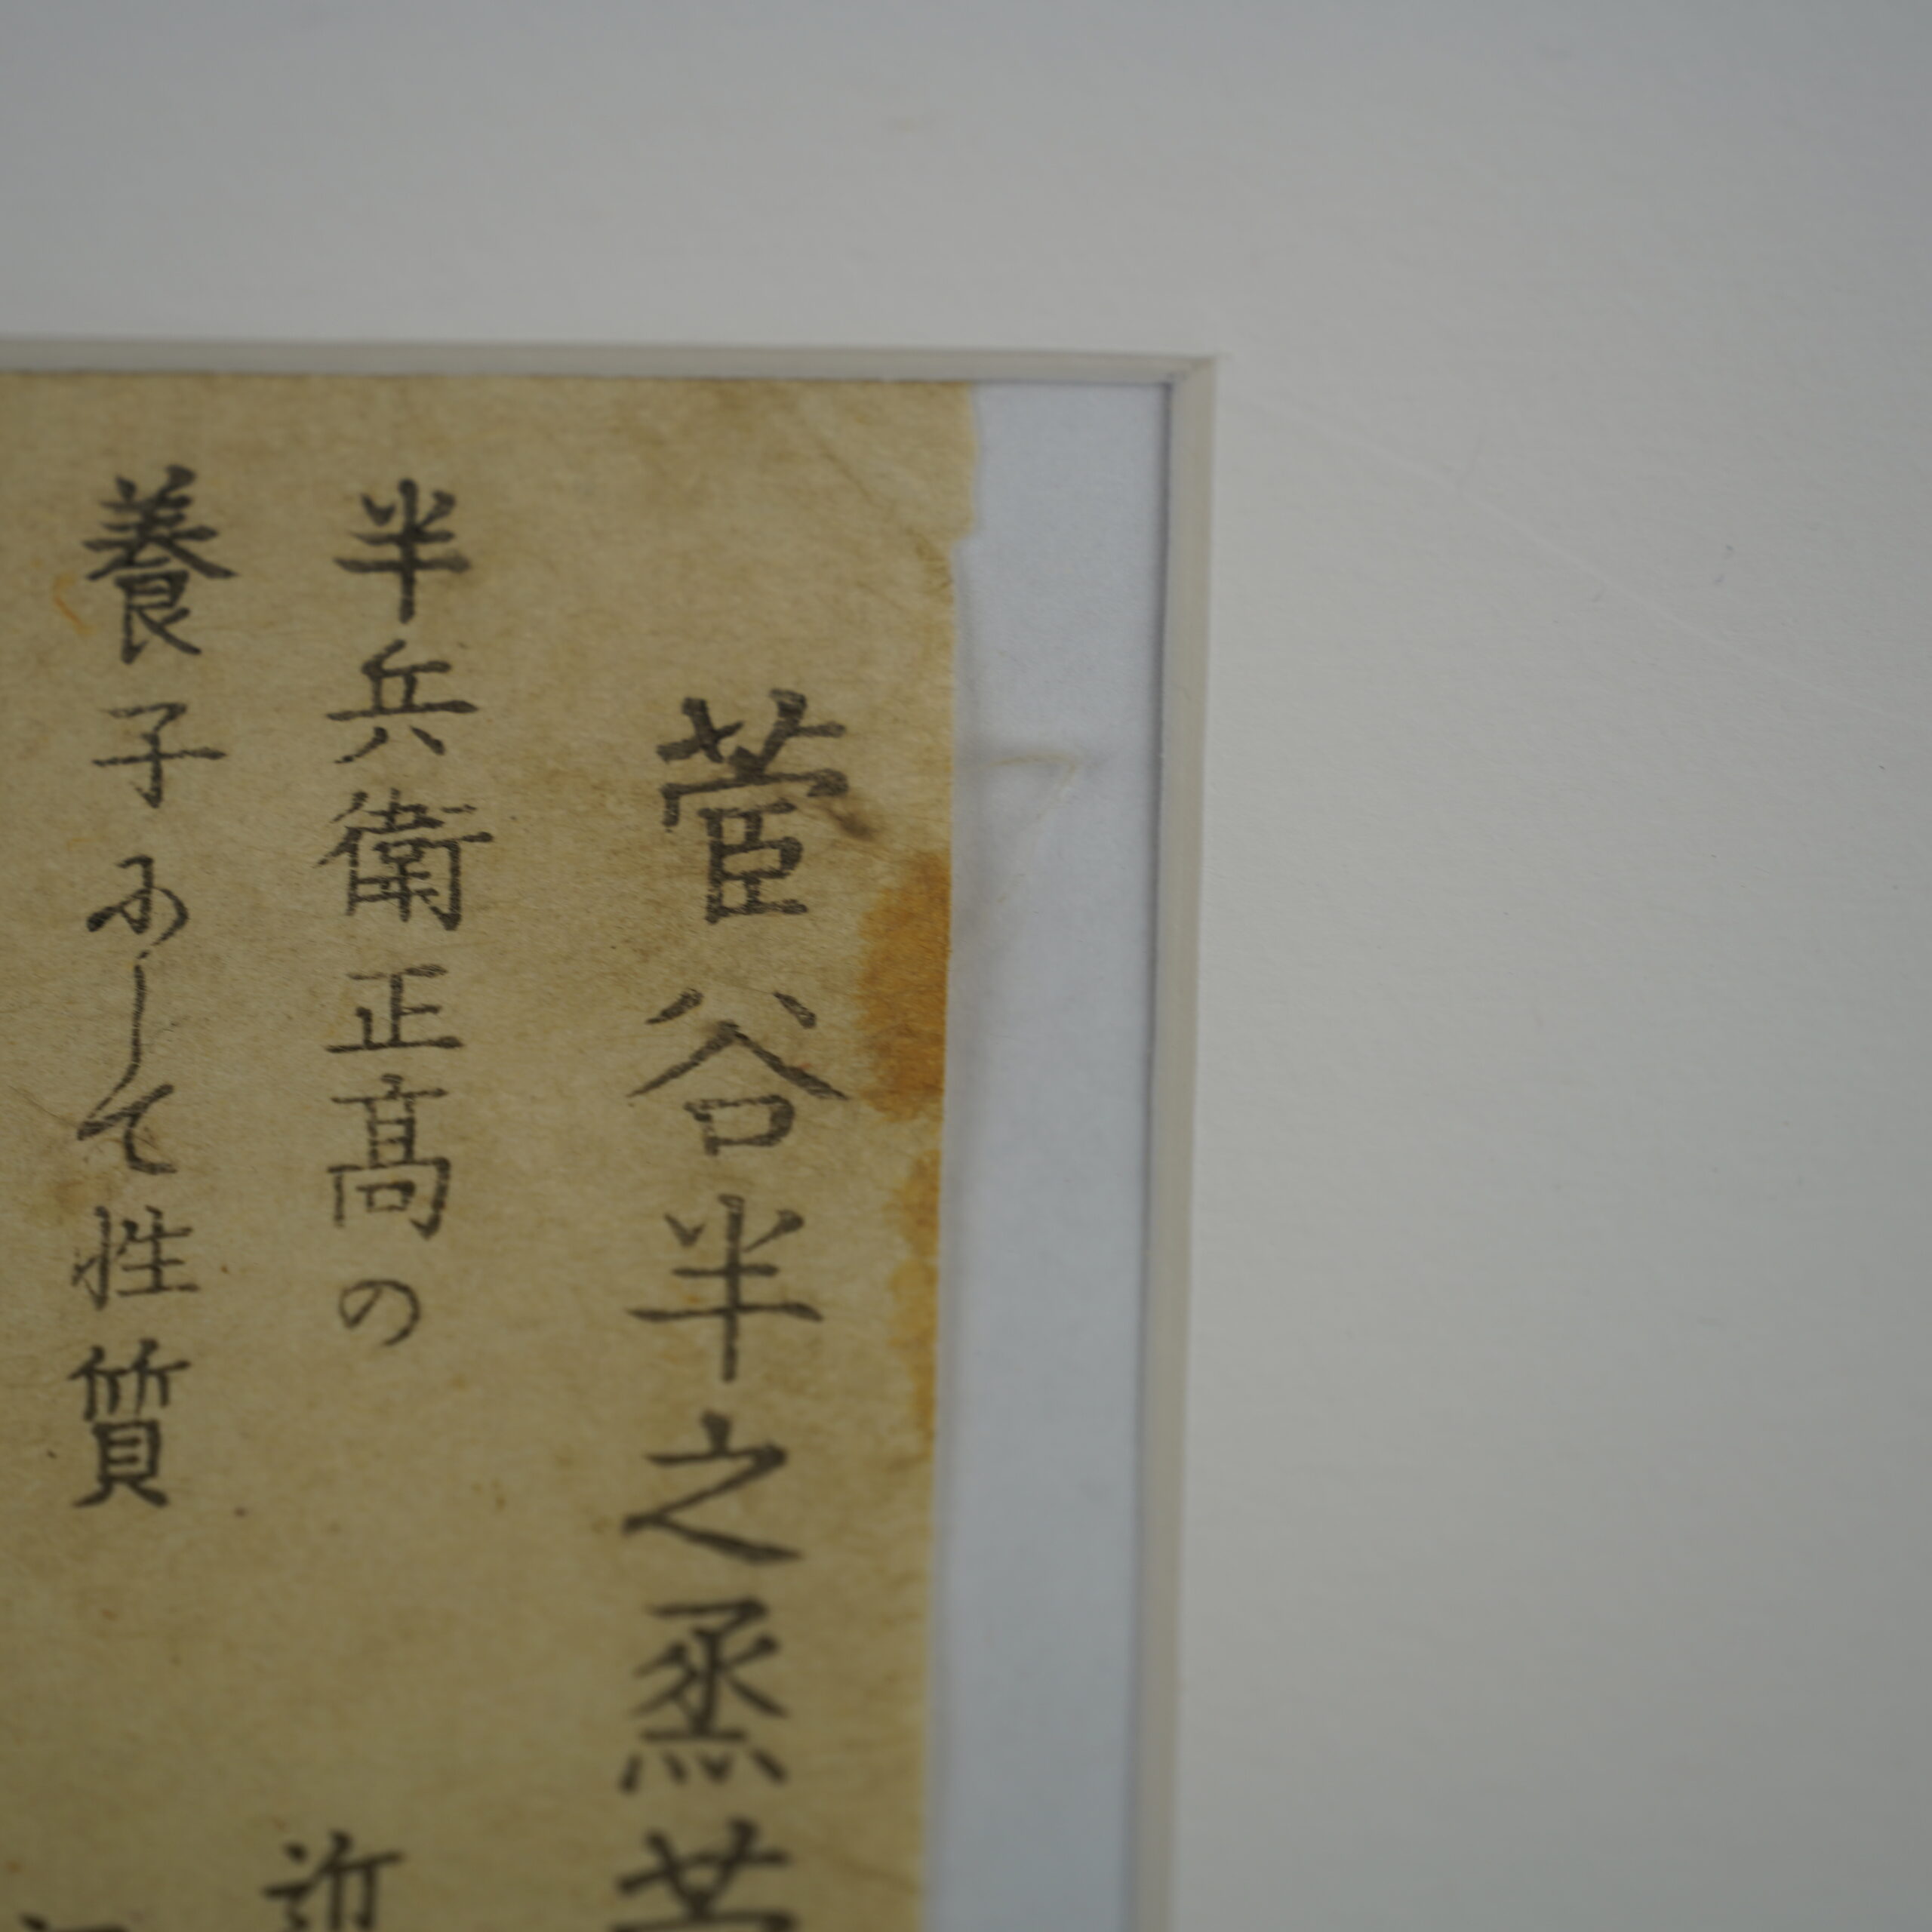 菅谷半之烝
半兵衛正髙の
養子にして性質